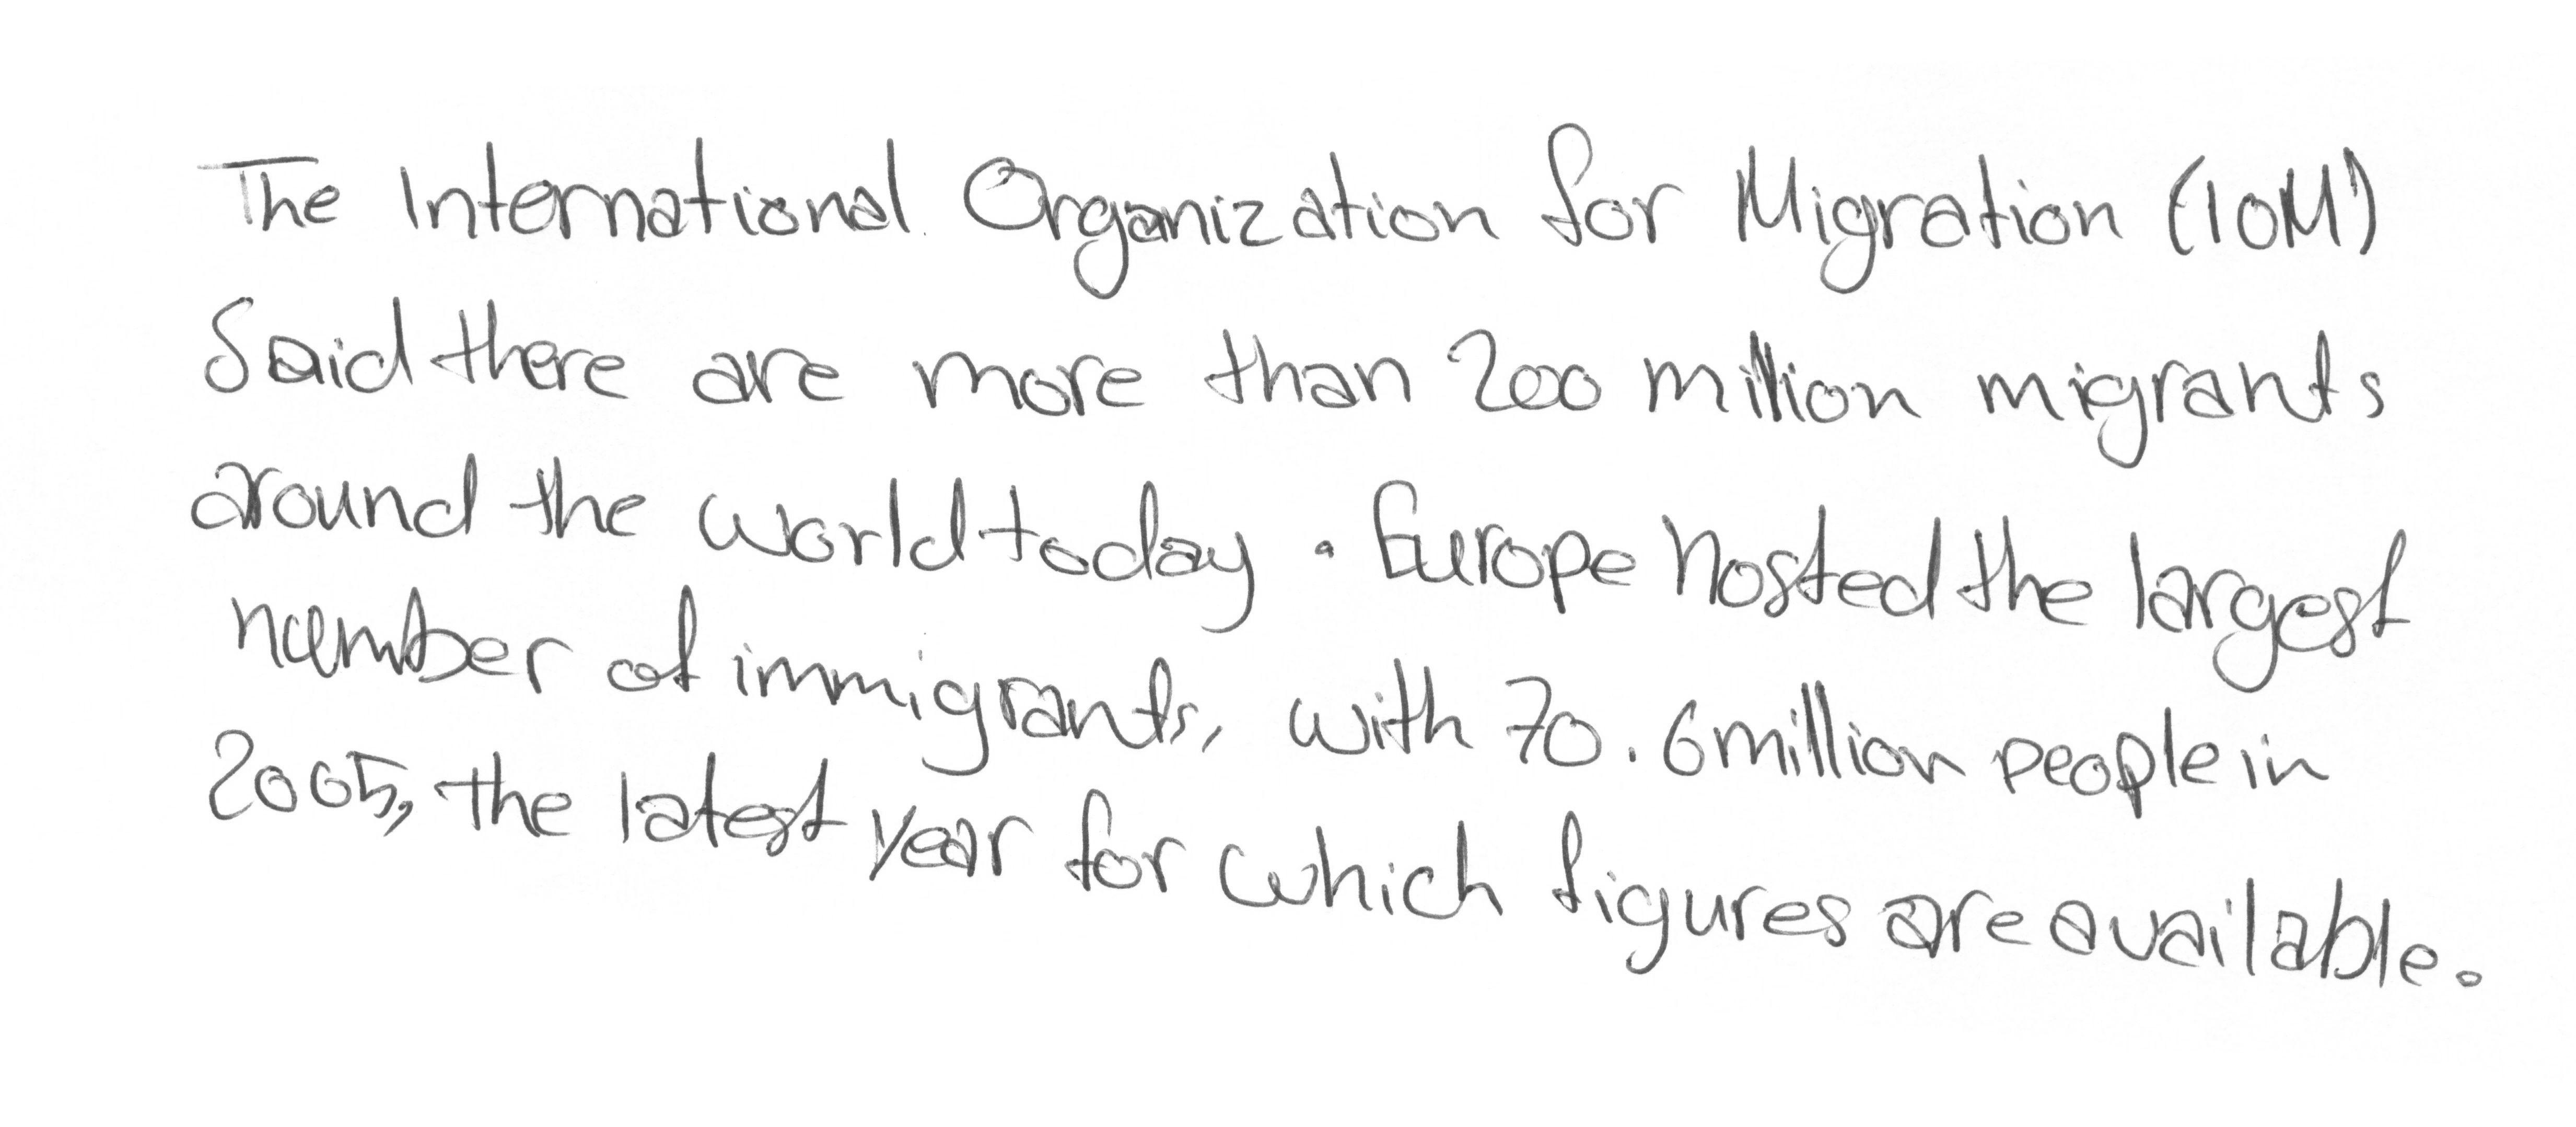 The International Organization for Migration (IOM)
Said there are more than 200 million migrants
around the world today. Europe hosted the largest
number of immigrants, with 70.6 million people in
2005, the latest year for which figures are available.